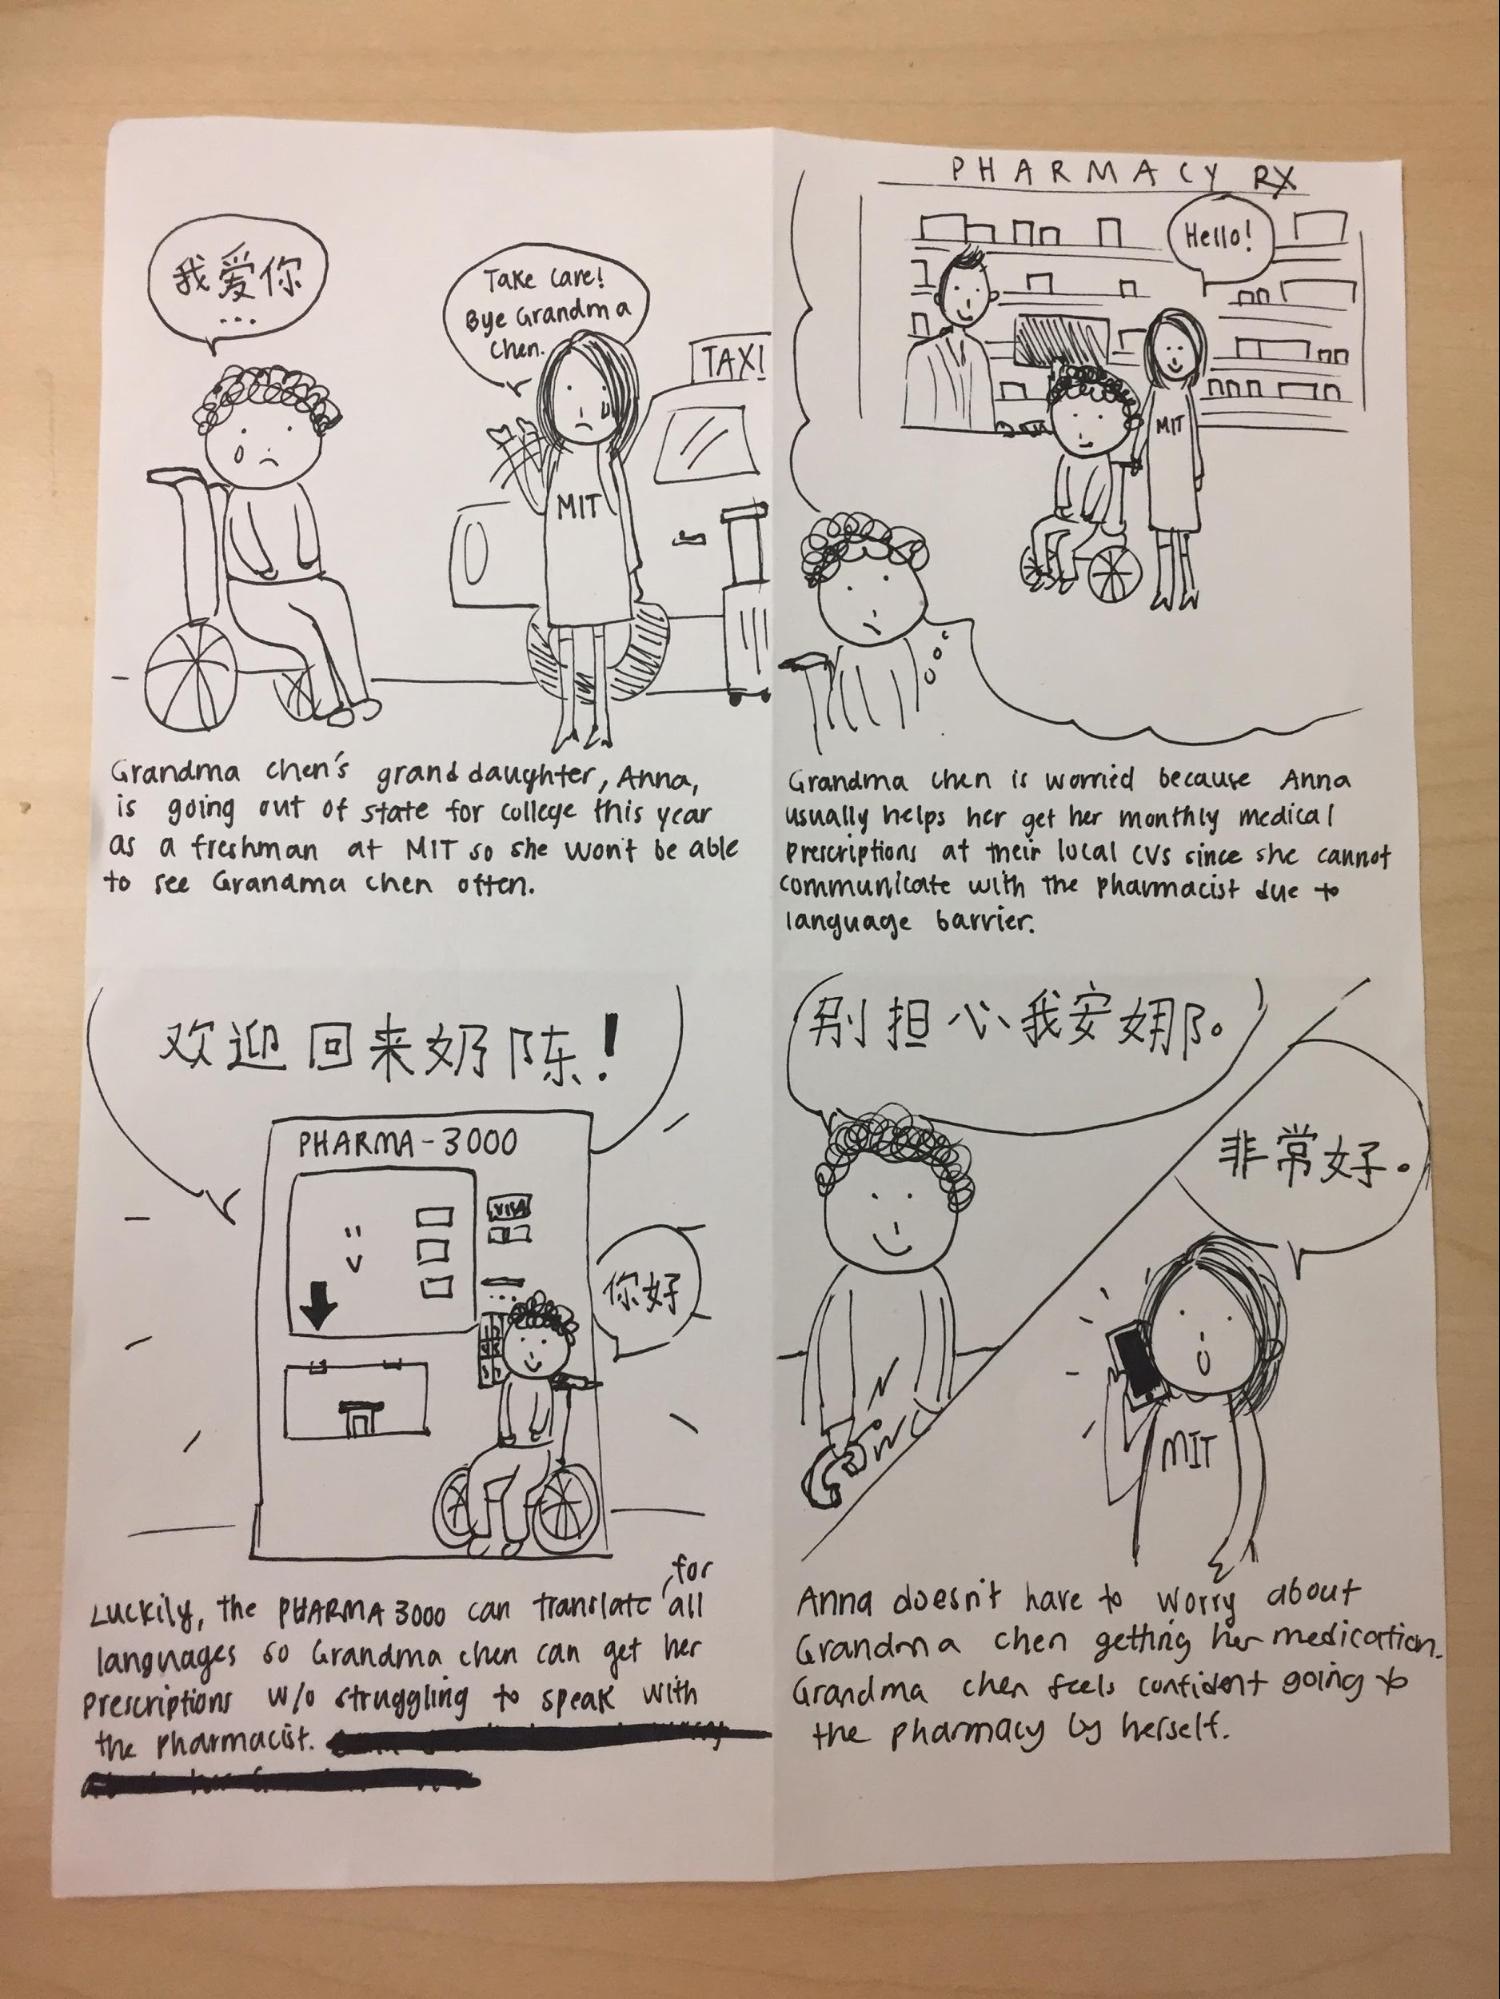 我爱你
...
Take Care!
Bye Grandma
Chen.
TAXI
MIT
Grandma Chen's granddaughter, Anna,
is going out of state for college this year
as a freshman at MIT so she won't be able
to see Grandma Chen often.
PHARMACY RX
Hello!
MIT
Grandma Chen is worried because Anna
usually helps her get her monthly medical
prescriptions at their local CVS since she cannot
communicate with the pharmacist due to
language barrier.
欢迎回来奶陈!
PHARMA-3000
VISA
你好
Luckily, the PHARMA 3000 can translate for all
languages so Grandma Chen can get her
prescriptions w/o struggling to speak with
the pharmacist.
别担心我安娜。
非常好。
MIT
Anna doesn't have to worry about
Grandma Chen getting her medication.
Grandma Chen feels confident going to
the pharmacy by herself.